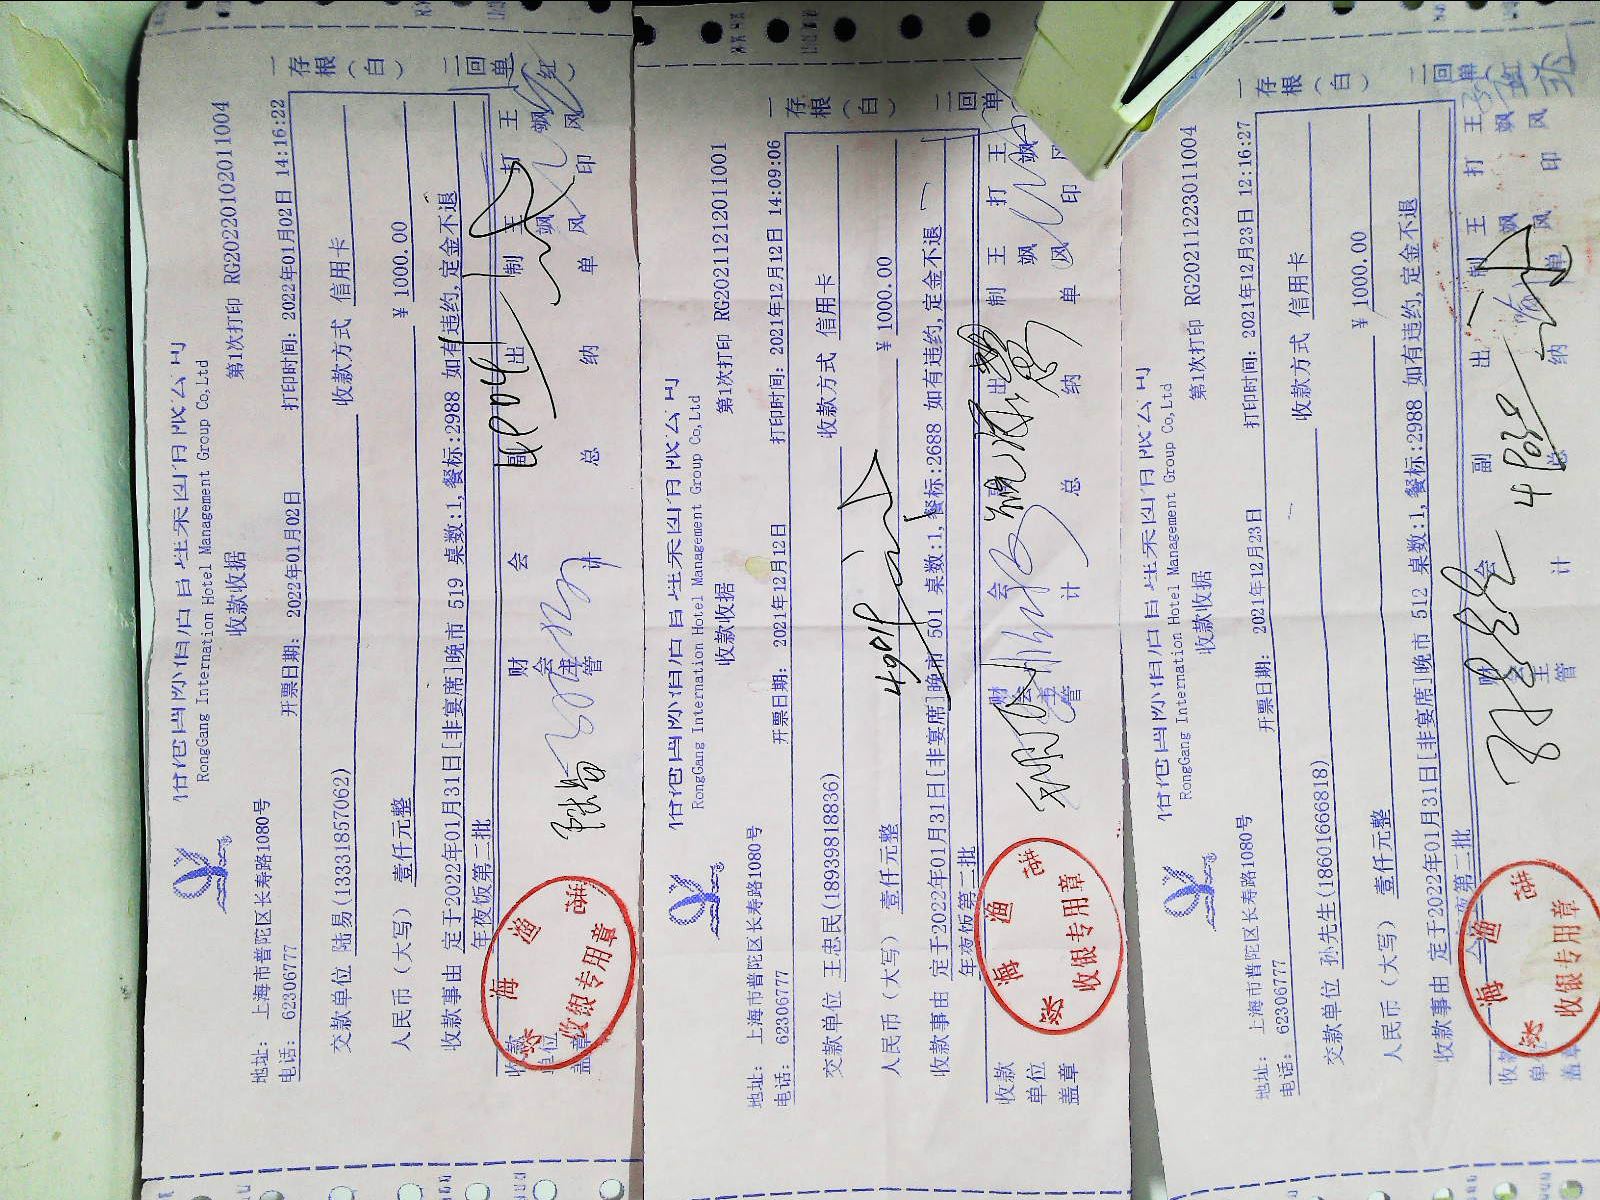 RongGang Internation Hotel Management Group Co,Ltd
收款收据
第1次打印 RG20220102011004
地址： 上海市普陀区长寿路1080号
电话： 62306777
开票日期： 2022年01月02日
打印时间：2022年01月02日 14:16:22
交款单位 陆易(13331857062)
收款方式 信用卡
人民币（大写） 壹仟元整
¥ 1000.00
收款事由 定于2022年01月31日[非宴席]晚市 519 桌数:1,餐标:2988 如有违约,定金不退
年夜饭第二批
收款单位盖章
财会主管
会计
副总
出纳
制单 王飒风
打印 王飒风
一存根（白）
二回单（红）
海渔
收银专用章
RongGang Internation Hotel Management Group Co,Ltd
收款收据
第1次打印 RG20211212011001
地址： 上海市普陀区长寿路1080号
电话： 62306777
开票日期： 2021年12月12日
打印时间：2021年12月12日 14:09:06
交款单位 王忠民(18939818836)
收款方式 信用卡
人民币（大写） 壹仟元整
¥ 1000.00
收款事由 定于2022年01月31日[非宴席]晚市 501 桌数:1,餐标:2688 如有违约,定金不退
年夜饭第二批
收款单位盖章
财会主管
会计
总
出纳
制单 王飒风
打印 王飒风
一存根（白）
二回单
海渔
收银专用章
RongGang Internation Hotel Management Group Co,Ltd
收款收据
第1次打印 RG20211223011004
地址： 上海市普陀区长寿路1080号
电话： 62306777
开票日期： 2021年12月23日
打印时间：2021年12月23日 12:16:27
交款单位 孙先生(18601666818)
收款方式 信用卡
人民币（大写） 壹仟元整
¥ 1000.00
收款事由 定于2022年01月31日[非宴席]晚市 512 桌数:1,餐标:2988 如有违约,定金不退
夜第二批
收款单位盖章
财会主管
会计
副总
出纳
制单 王飒风
打印 王飒风
一存根（白）
二回单（红
海渔
收银专用章